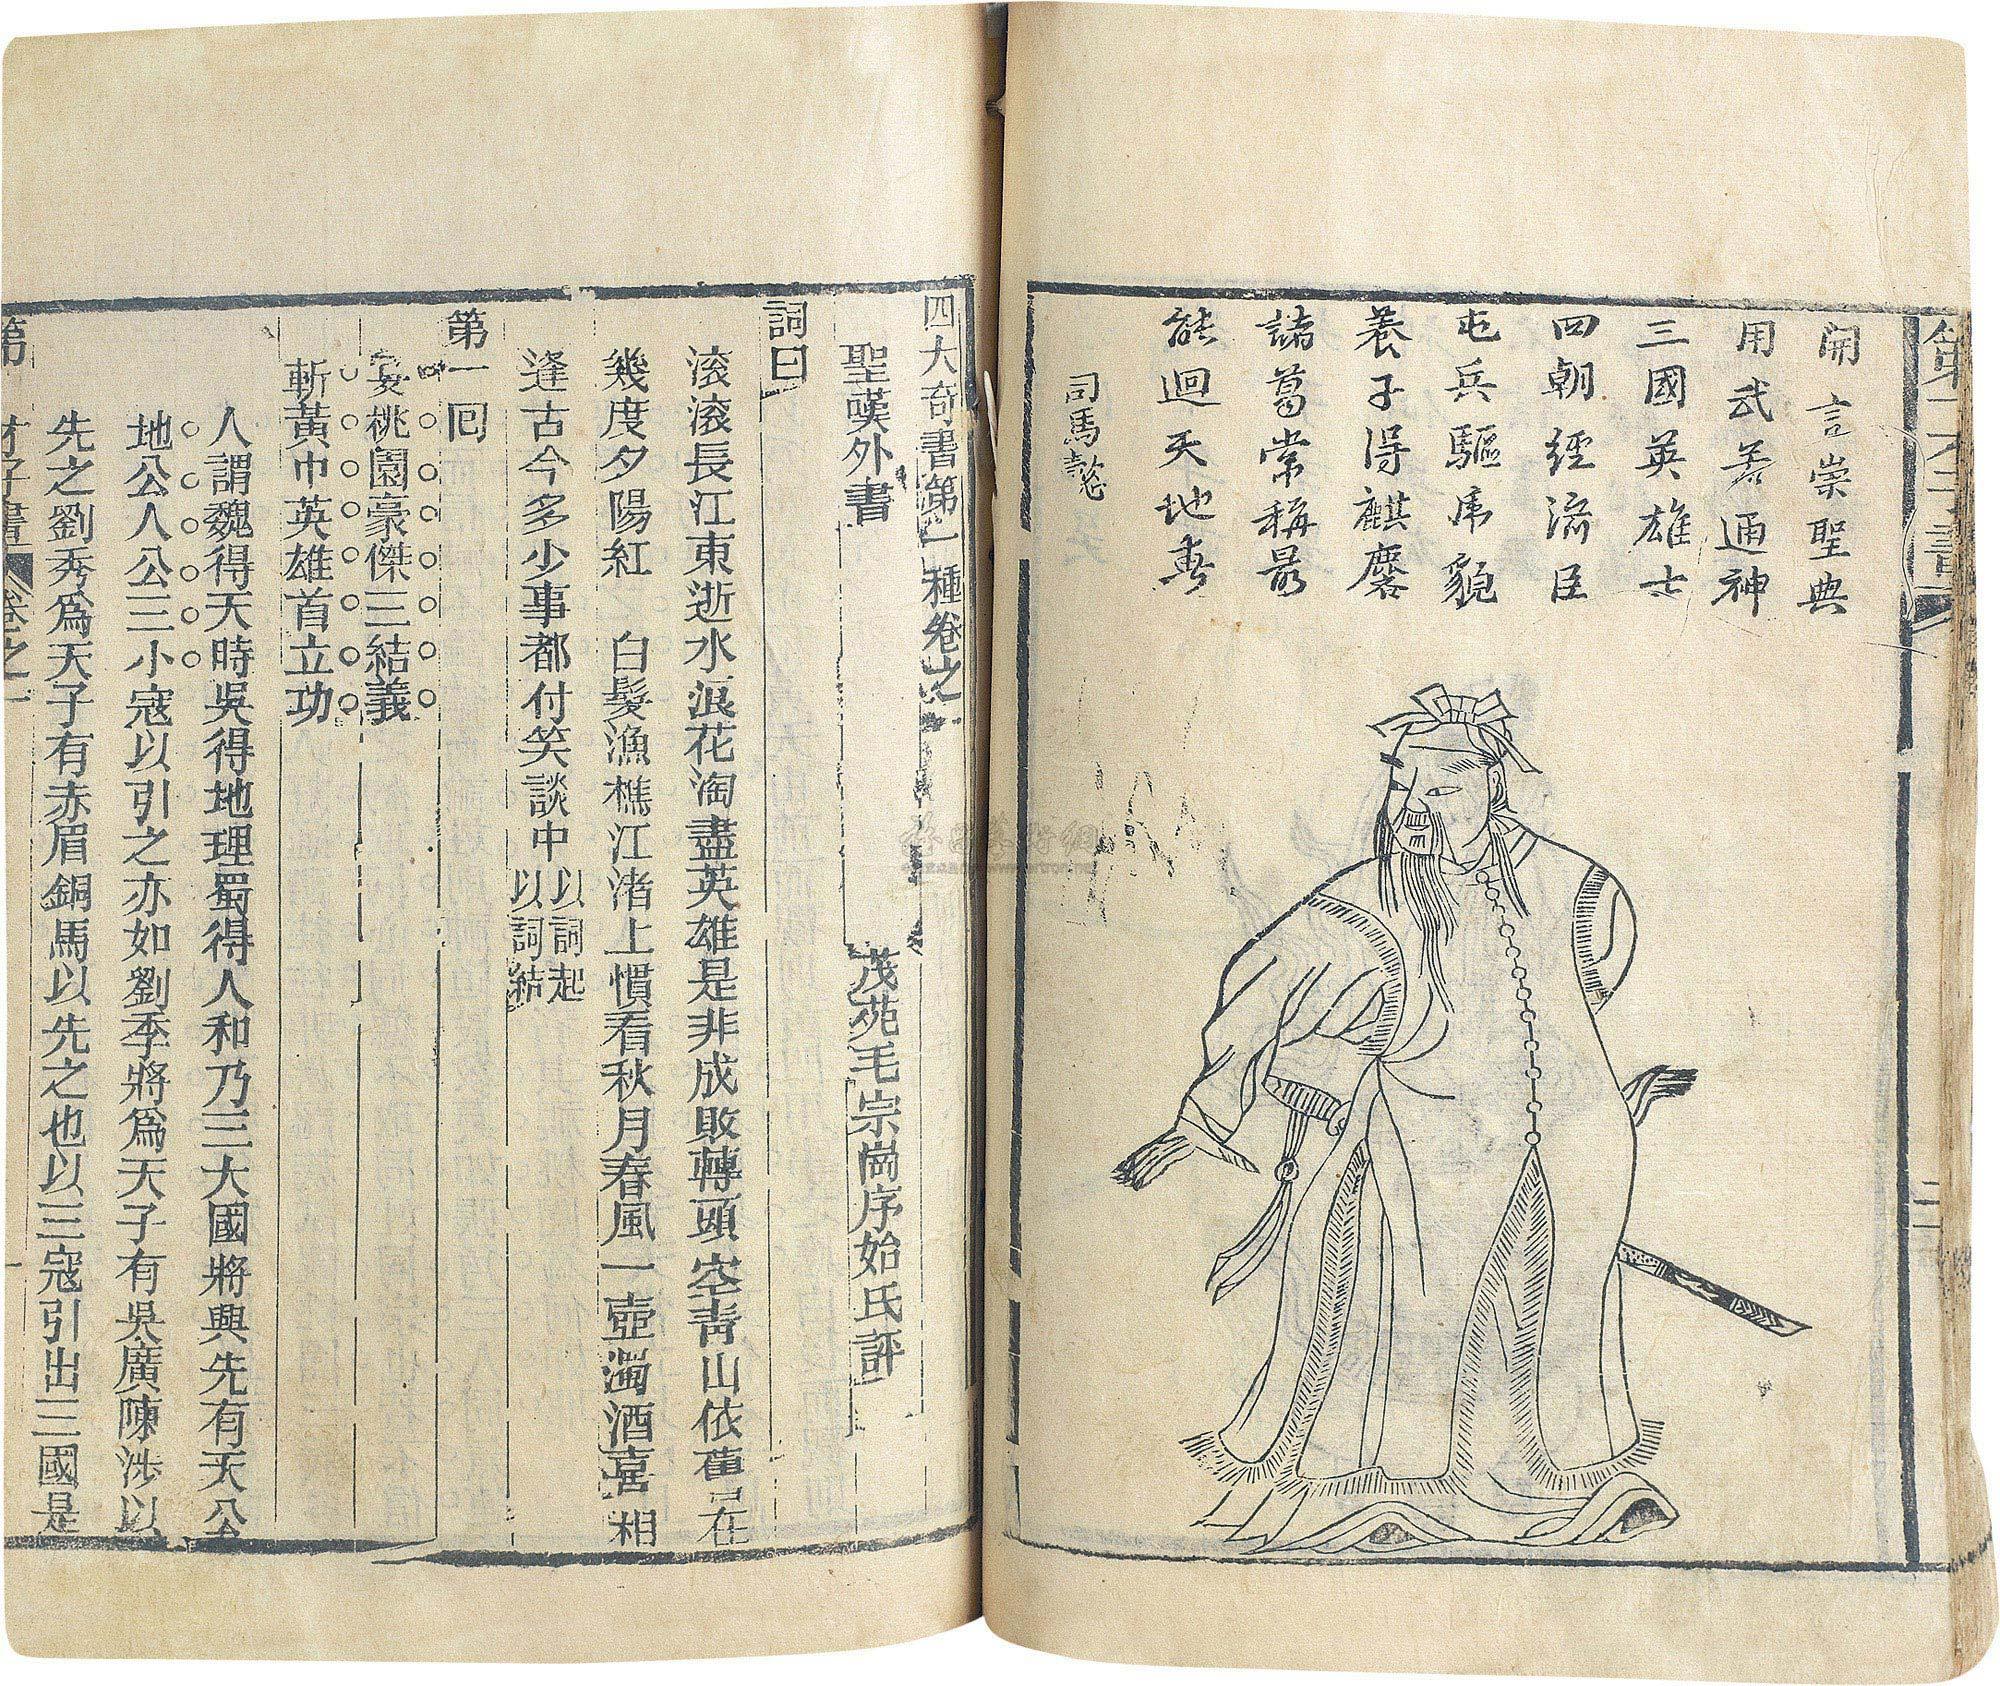 開言崇聖典
用武若通神
三國英雄士
四朝經濟臣
屯兵驅虎貌
養子得麒麐
諸葛常稱最
能迴天地春
司馬懿
四大奇書第一種卷之一
聖嘆外書
茂苑毛宗崗序始氏評
詞曰
滾滾長江東逝水浪花淘盡英雄是非成敗轉頭空青山依舊在
幾度夕陽紅 白髮漁樵江渚上慣看秋月春風一壺濁酒喜相
逢古今多少事都付笑談中
以詞起
以詞結
第一回
宴桃園豪傑三結義
斬黃巾英雄首立功
人謂魏得天時吳得地理蜀得人和乃三大國將興先有天公
地公人公三小寇以引之亦如劉季將為天子有吳廣陳涉以
先之劉秀為天子有赤眉銅馬以先之也以三寇引出三國是
第一才子書
卷之一